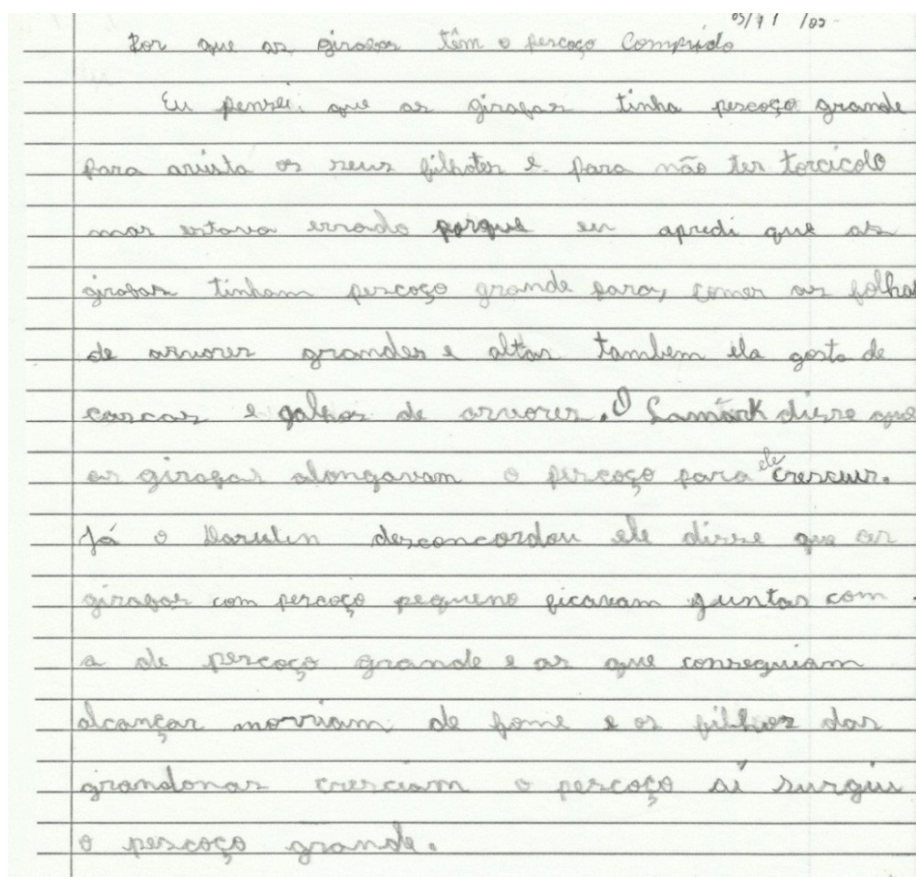 03/11/02
Por que as girafas têm o pescoço Comprido
Eu pensei que as girafas tinha pescoço grande
para avista os seus filhotes e para não ter torcicolo
mas estava errado porque eu apredi que as
girafas tinham pescoço grande para, comer as folhas
de arvores grandes e altas tambem ela gosta de
cascas e galhos de arvores. O Lamark disse que
as girafas alongavam o pescoço para ele crescer.
Já o Darwlin desconcordou ele disse que as
girafas com pescoço pequeno ficavam juntas com
a de pescoço grande e as que conseguiam
alcançar morriam de fome e os filhos das
grandonas cresciam o pescoço aí surgiu
o pescoço grande.